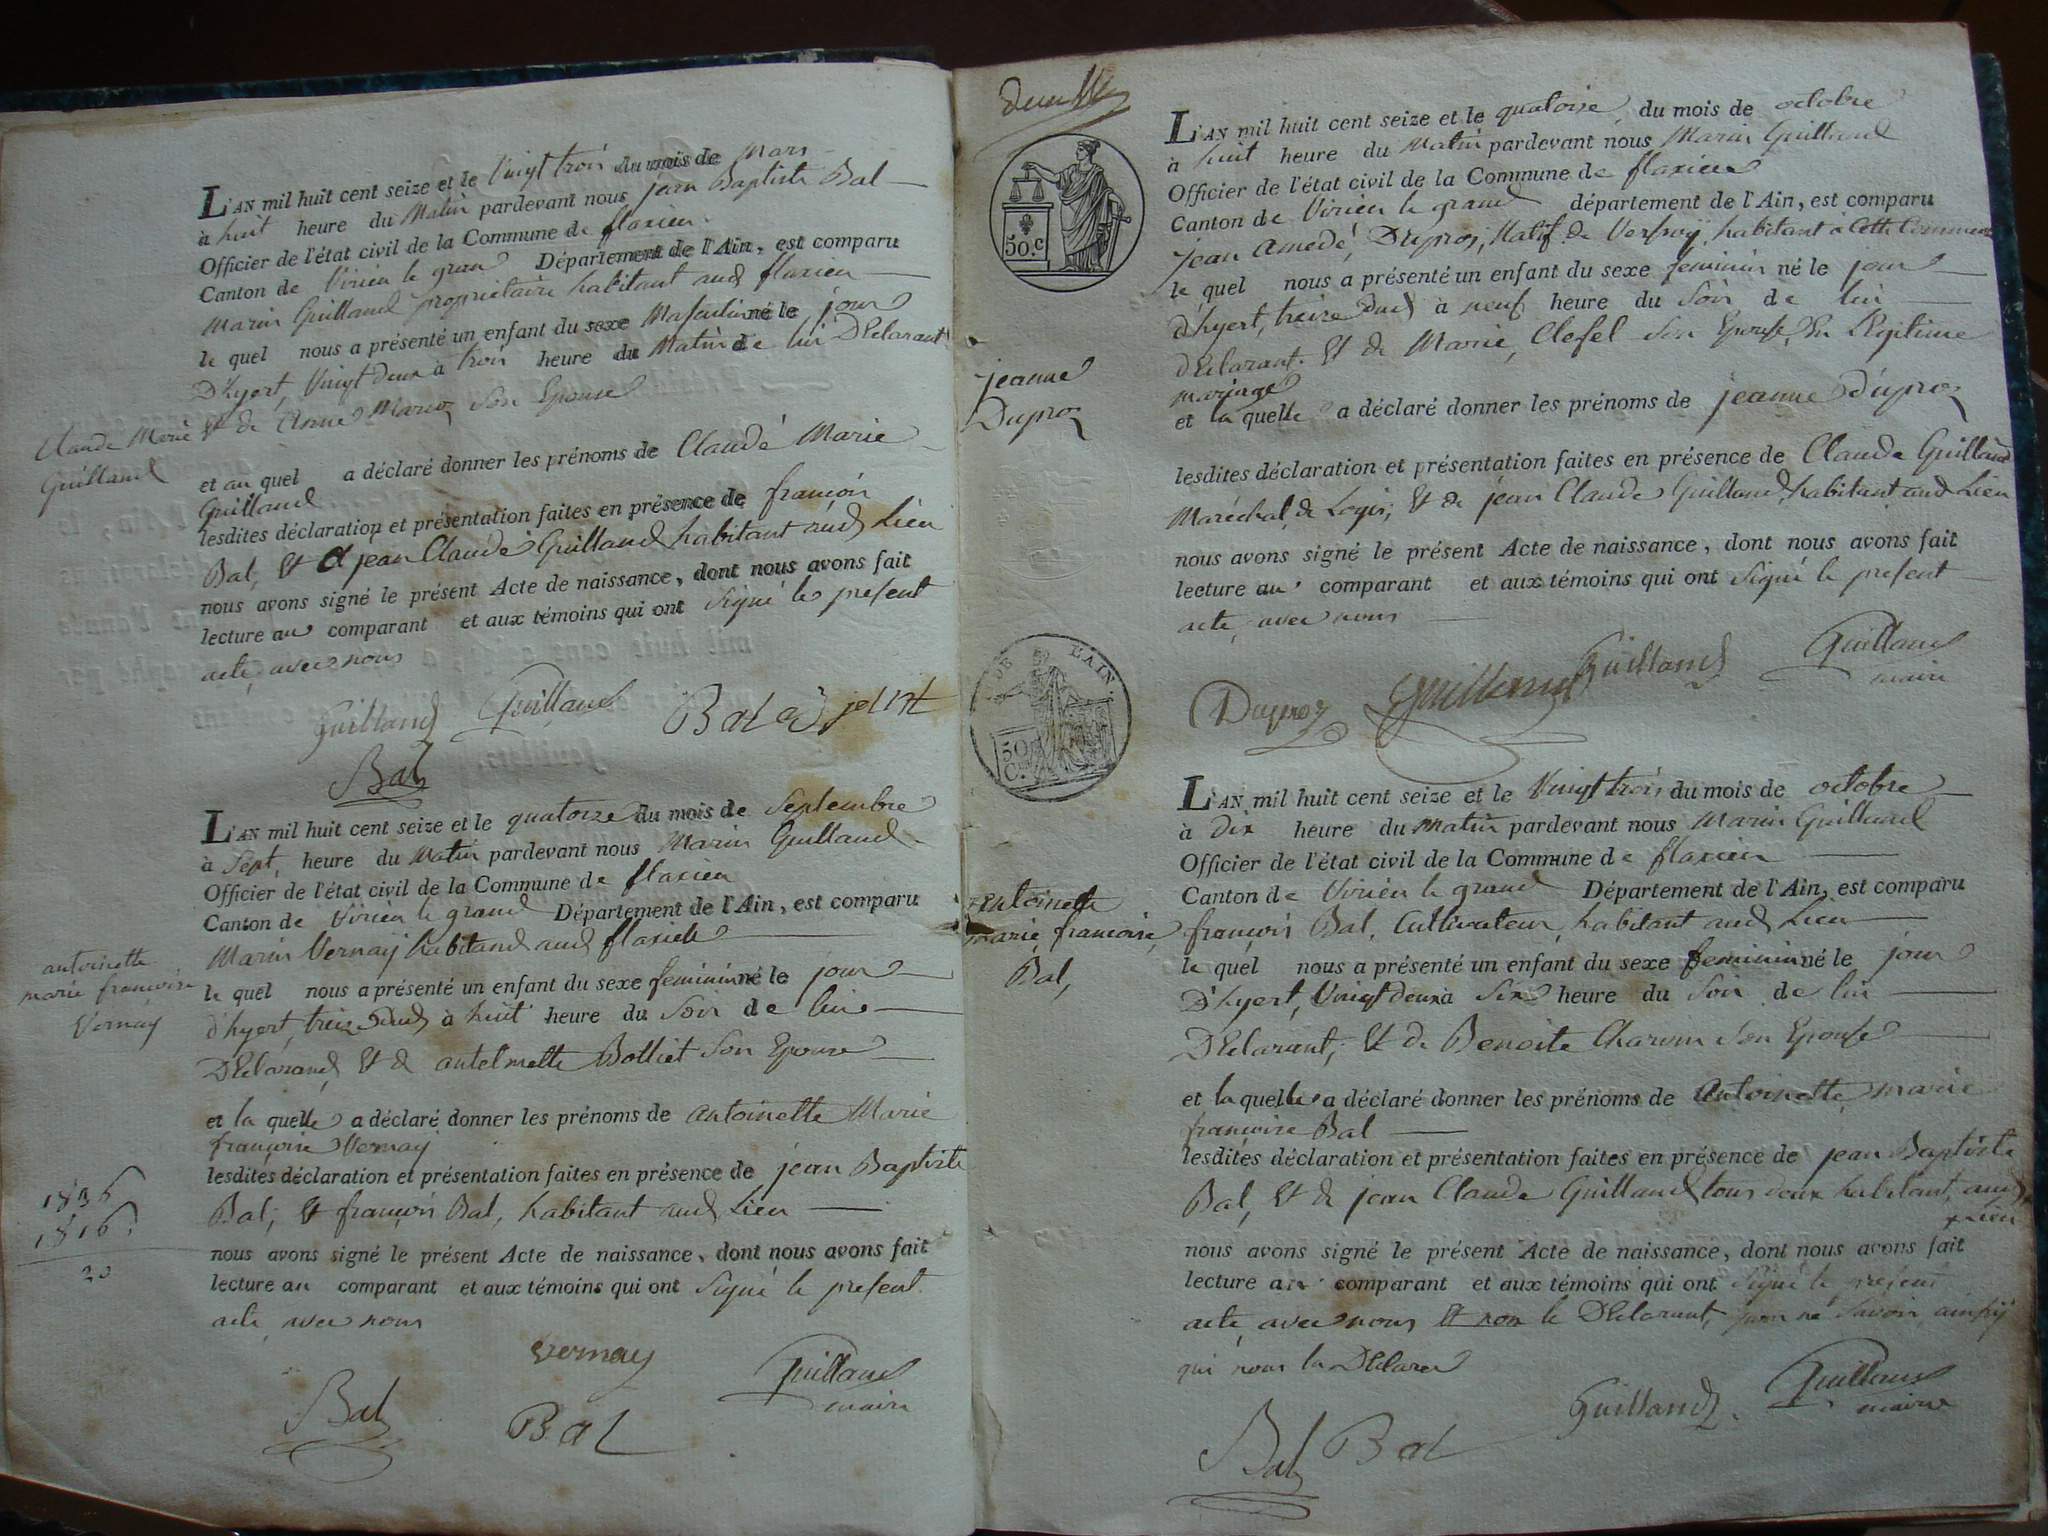 L'AN mil huit cent seize et le Vingt trois du mois de Mars
à huit heure du Matin pardevant nous jean Baptiste Bal
Officier de l'état civil de la Commune de flaxieu
Canton de Virieu le grand Département de l'Ain, est comparu
Marin Guilland proprietaire habitant aud flaxieu
le quel nous a présenté un enfant du sexe Masculin né le jour
D'hyert, Vingt deux à trois heure du Matin de lui DEclarant
Claude Marie Et de Anne Maroz Son Epouse
Guilland
et au quel a déclaré donner les prénoms de Claude Marie
Guilland
lesdites déclaration et présentation faites en présence de françois
Bal, Et d jean Claude Guilland habitant aud Lieu
nous avons signé le présent Acte de naissance, dont nous avons fait
lecture au comparant et aux témoins qui ont Signé le present
acte avec nous
Guilland Guilland Bal adjoint
Bal
L'AN mil huit cent seize et le quatorze du mois de Septembre
à Sept, heure du Matin pardevant nous Marin Guilland
Officier de l'état civil de la Commune de flaxieu
Canton de Virieu le grand Département de l'Ain, est comparu
Marin Vernay habitand aud flaxieu
antoinette
marie françoise
Vernay
le quel nous a présenté un enfant du sexe feminin né le jour
d'hyert, treize dud à huit heure du Soir de lui
DEclarand, Et d antelmette Bolliet Son Epouse
et la quelle a déclaré donner les prénoms de antoinette Marie
françoise Vernay
lesdites déclaration et présentation faites en présence de jean Baptiste
Bal, Et françois Bal, habitant aud Lieu
1836
1816
20
nous avons signé le présent Acte de naissance, dont nous avons fait
lecture au comparant et aux témoins qui ont Signé le present
acte avec nous
Vernay Guilland
maire
Bal Bal
50. c
L'AN mil huit cent seize et le quatorze du mois de octobre
à huit heure du Matin pardevant nous Marin Guilland
Officier de l'état civil de la Commune de flaxieu
Canton de Virieu le grand département de l'Ain, est comparu
jean amedé Duproz, Natif de habitant à Cette Commune
le quel nous a présenté un enfant du sexe feminin né le jour
d'hyert, treize dud à neuf heure du Soir de lui
DEclarant. Et de Marie Clefel Son Epouse, En Legitime
mariage
jeanne
Duproz
et la quelle a déclaré donner les prénoms de jeanne Duproz
lesdites déclaration et présentation faites en présence de Claude Guilland
Maréchal de Logis, Et de jean Claude Guilland, habitant aud Lieu
nous avons signé le présent Acte de naissance, dont nous avons fait
lecture au comparant et aux témoins qui ont Signé le present
acte avec nous
DE L'AIN.
50
C.
Duproz Guilland Guilland Guilland
maire
L'AN mil huit cent seize et le Vingt trois du mois de octobre
à dix heure du matin pardevant nous Marin Guilland
Officier de l'état civil de la Commune de flaxieu
Canton de Virieu le grand Département de l'Ain, est comparu
antoinette
marie françoise
Bal,
françois Bal, Cultivateur habitant aud Lieu
le quel nous a présenté un enfant du sexe feminin né le jour
D'hyert, Vingt deux à Six heure du Soir de lui
DEclarant, Et de Benoite Charvin Son Epouse
et la quelle a déclaré donner les prénoms de antoinette marie
françoise Bal
lesdites déclaration et présentation faites en présence de jean Baptiste
Bal, Et de jean Claude Guilland tous deux habitant, aud
Lieu
nous avons signé le présent Acte de naissance, dont nous avons fait
lecture au comparant et aux témoins qui ont Signé le present
acte avec nous Et non le DEclarant, pour ne Savoir ainsÿ
qui nous la DEclaré
Guilland Guilland
maire
Bal Bal